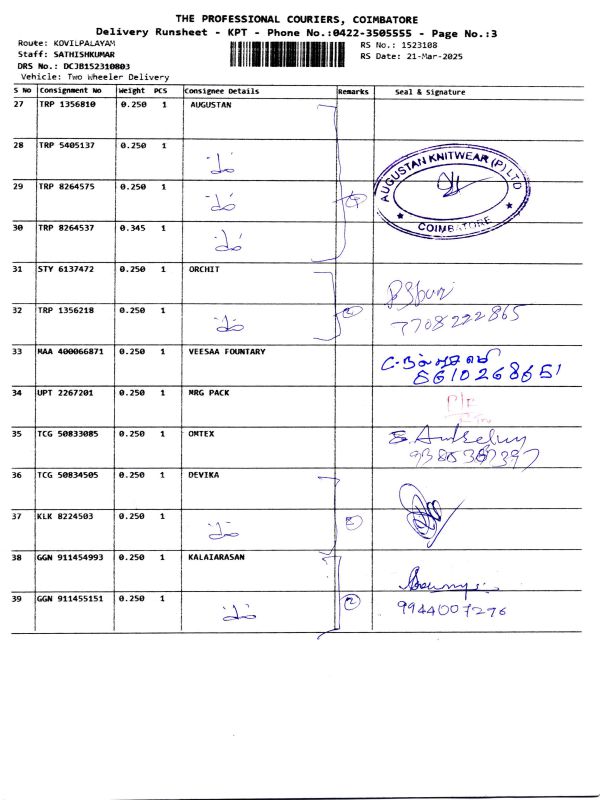 THE PROFESSIONAL COURIERS, COIMBATORE
Delivery Runsheet - KPT - Phone No.:0422-3505555 - Page No.:3
Route: KOVILPALAYAM
RS No.: 1523108
Staff: SATHISHKUMAR
RS Date: 21-Mar-2025
DRS No.: DCJB152310803
Vehicle: Two Wheeler Delivery
S No Consignment No Weight PCS Consignee Details Remarks Seal & Signature
27 TRP 1356810 0.250 1 AUGUSTAN
28 TRP 5405137 0.250 1
29 TRP 8264575 0.250 1
AUGUSTAN KNITWEAR (P) LTD
COIMBATORE
30 TRP 8264537 0.345 1
31 STY 6137472 0.250 1 ORCHIT
32 TRP 1356218 0.250 1 2
7708222865
33 MAA 400066871 0.250 1 VEESAA FOUNTARY
8610268651
34 UPT 2267201 0.250 1 MRG PACK
35 TCG 50833085 0.250 1 OMTEX
9385387397
36 TCG 50834505 0.250 1 DEVIKA
37 KLK 8224503 0.250 1
38 GGN 911454993 0.250 1 KALAIARASAN
39 GGN 911455151 0.250 1 2
9944007276